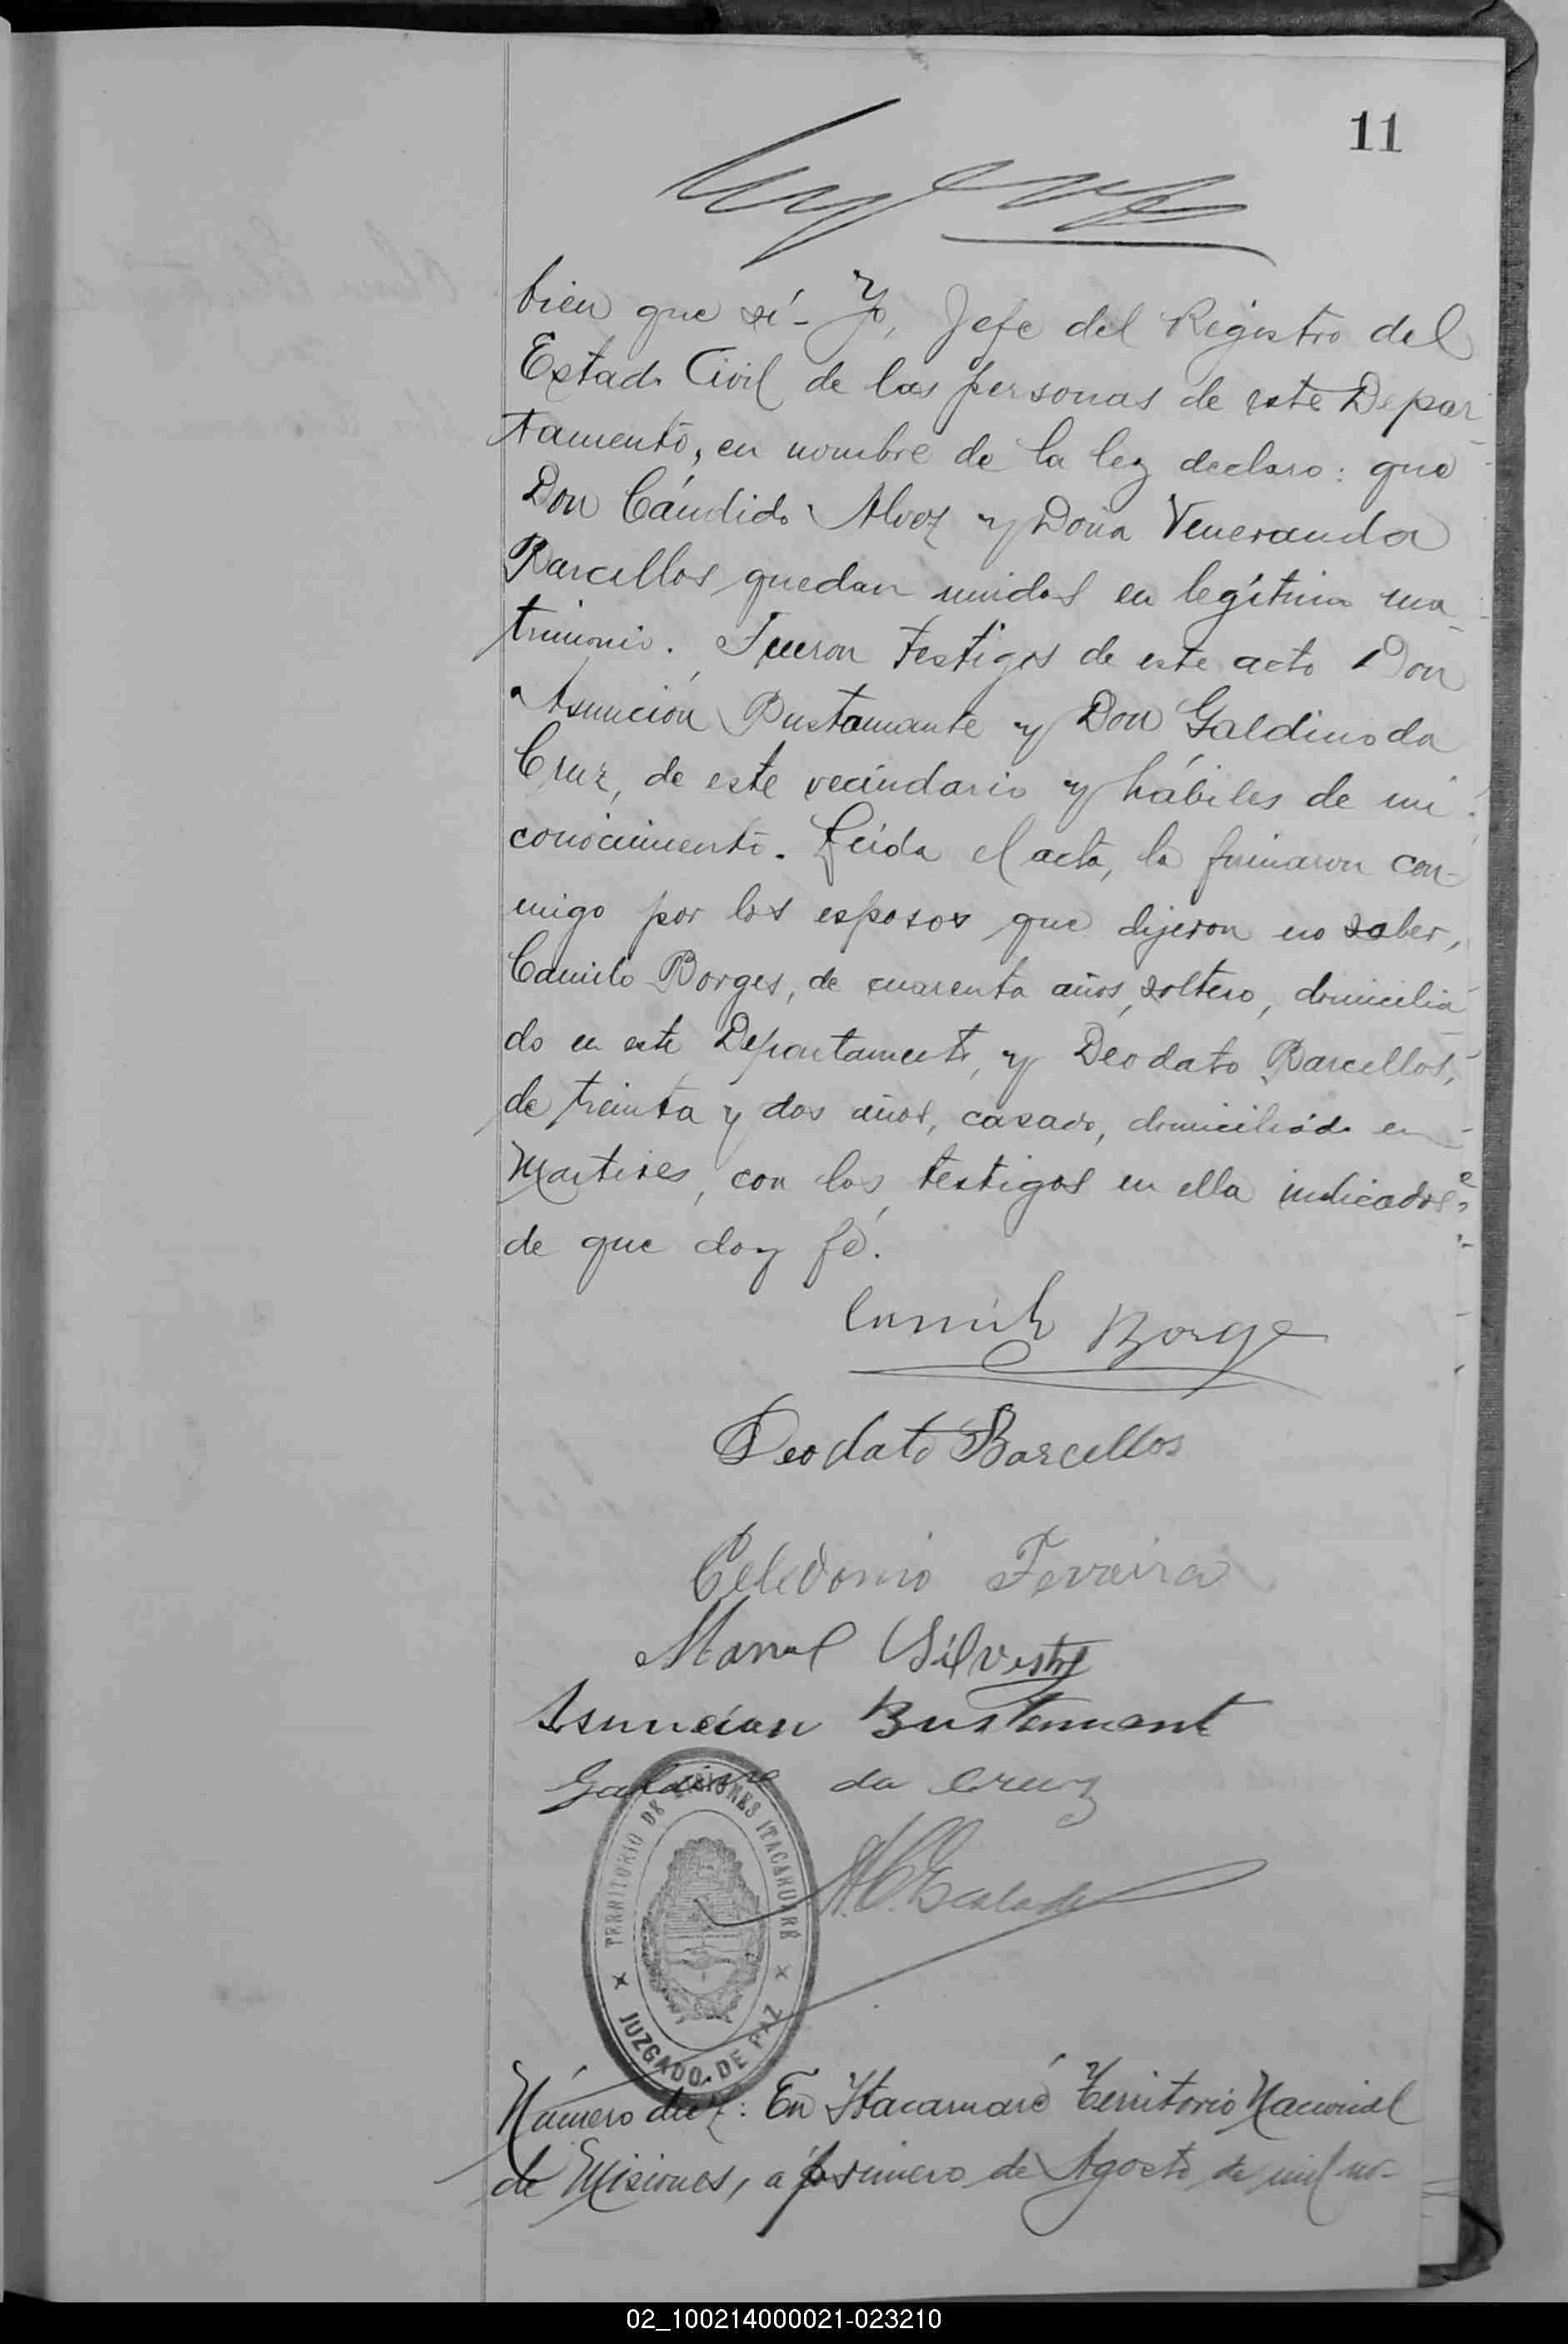 11
bien que sí- Yo, Jefe del Registro del
Estado Civil de las personas de este Depar-
tamento, en nombre de la ley declaro: que
Don Cándido Alvez y Doña Veneranda
Barcellos quedan unidos en legítimo ma-
trimonio. Fueron testigos de este acto Don
Asunción Bustamante y Don Galdino da
Cruz, de este vecindario y hábiles de mi
conocimiento. Leída el acta, la firmaron con-
migo por los esposos que dijeron no saber,
Camilo Borges, de cuarenta años, soltero, domicilia-
do en este Departamento, y Deodato Barcellos,
de treinta y dos años, casado, domiciliado en
Martires, con los testigos en ella indicados
de que doy fé.
Camilo Borge
Deodato Barcellos
Celedonio Ferreira
Manuel Silvestre
Asuncion Bustamant
Galdino da Cruz
TERRITORIO DE MISIONES ITACARUARÉ
JUZGADO DE PAZ
Número diez: En Itacaruaré Territorio Nacional
de Misiones, a primero de Agosto de mil no-
02_100214000021-023210